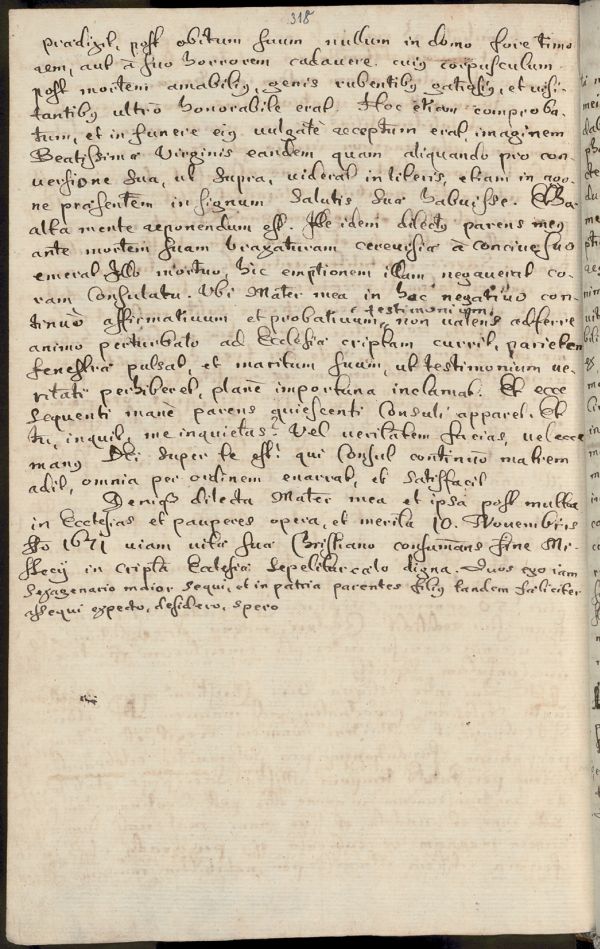 318
prædixit, post obitum suum nullum in domo fore timo-
rem, aut à suo horrorem cadavere. cuiq corpusculum
post mortem amabiliq, genis rubentibq, et visi-
tantibq ultrò honorabile erat. Hoc etiam comproba-
tum, et in funere eiq vulgatè receptum erat, imaginem
Beatissimæ Virginis eandem quam aliquando pro con-
versione sua, ut supra, viderat in literis, etiam in ago-
ne præsentem in signum salutis suæ habuisse. Et
alta mente reponendum est. Ille idem dilectq parens meq
ante mortem suam braxaturam cerevisiæ à concive suo
emerat. Illo mortuo, hic emptionem illam negaverat co-
ram Consulatu. Ubi Mater mea in hoc negativo con-
tinuò affirmativum et probativum testimonium non valens adferre
animo perturbato ad Ecclesiæ criptam currit, parietem
fenestræ pulsat, et maritum suum, ut testimonium ve-
ritati perhiberet, planè importuna inclamat. Et ecce
sequenti manè parens quiescenti Consuli apparet. Et
tu, inquit, me inquietas? Vel veritatem facias, vel ecce
manq Dei super te est! qui Consul continuò matrem
adit, omnia per ordinem enarrat, et satisfacit
Deniq dilecta Mater mea et ipsa post multa
in Ecclesias et pauperes opera, et merita 10. Novembris
Ao 1671 viam vitæ suæ Christiano consumans fine
in cripta Ecclesiæ sepelitur cælo digna. Quos ego iam
sexagenario maior sequi, et in patria parentes filiq tandem fæliciter
assequi expecto, desidero, spero